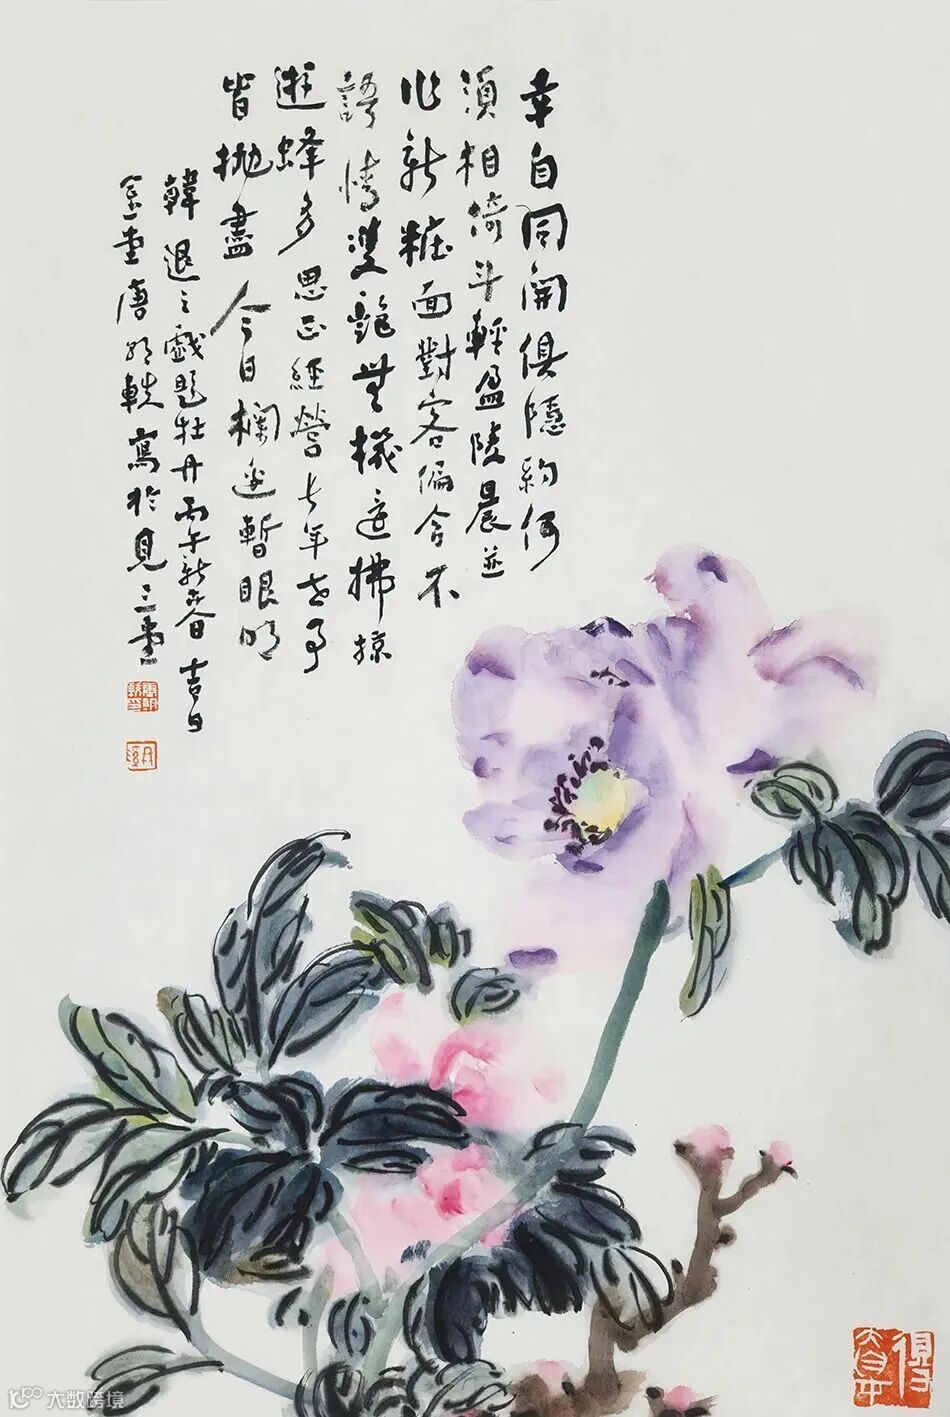 幸自同開俱隱約何
須相倚斗輕盈陵晨並
作新粧面對客偏含不
語情雙鷰無機還拂掠
遊蜂多思正經營長年世事
皆抛盡今日欄邊暫眼明
韓退之戲題牡丹丙午新春吉日
唐 軼寫於見三堂
大数跨境